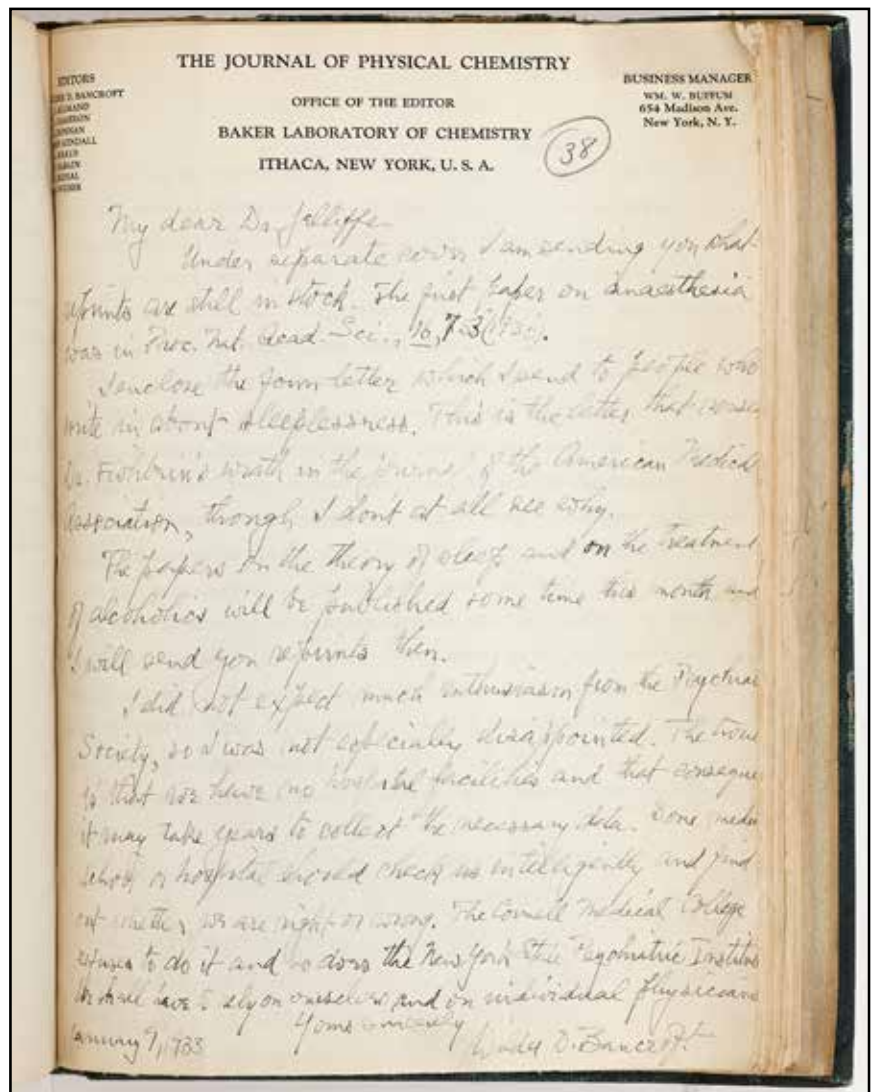 THE JOURNAL OF PHYSICAL CHEMISTRY
OFFICE OF THE EDITOR
BAKER LABORATORY OF CHEMISTRY
ITHACA, NEW YORK, U. S. A.
EDITORS
BANCROFT
KENDALL
BUSINESS MANAGER
WM. W. BUFFUM
654 Madison Ave.
New York, N. Y.
38
My dear Dr. Jelliffe
Under separate cover I am sending you what
reprints are still in stock. The first paper on anaesthesia
was in Proc. Nat. Acad. Sci., 16,
I enclose the form letter which I send to people who
write in about sleeplessness. This is the letter that
Dr. Fishbein's wrath in the Journal of the American Medical
Association, though I don't at all see why.
The papers on the theory of sleep and on the treatment
of alcoholics will be published some time this month and
I will send you reprints then.
I did not expect much enthusiasm from the
Society, so I was not especially disappointed. The
is that we have no hospital facilities and that
it may take years to collect the necessary data. Some
school or hospital should check us intelligently and find
out whether we are right or wrong. The Cornell Medical College
refuses to do it and so does the New York State Psychiatric
We shall have to rely on ourselves and on individual physicians
Yours sincerely
Wilder D. Bancroft